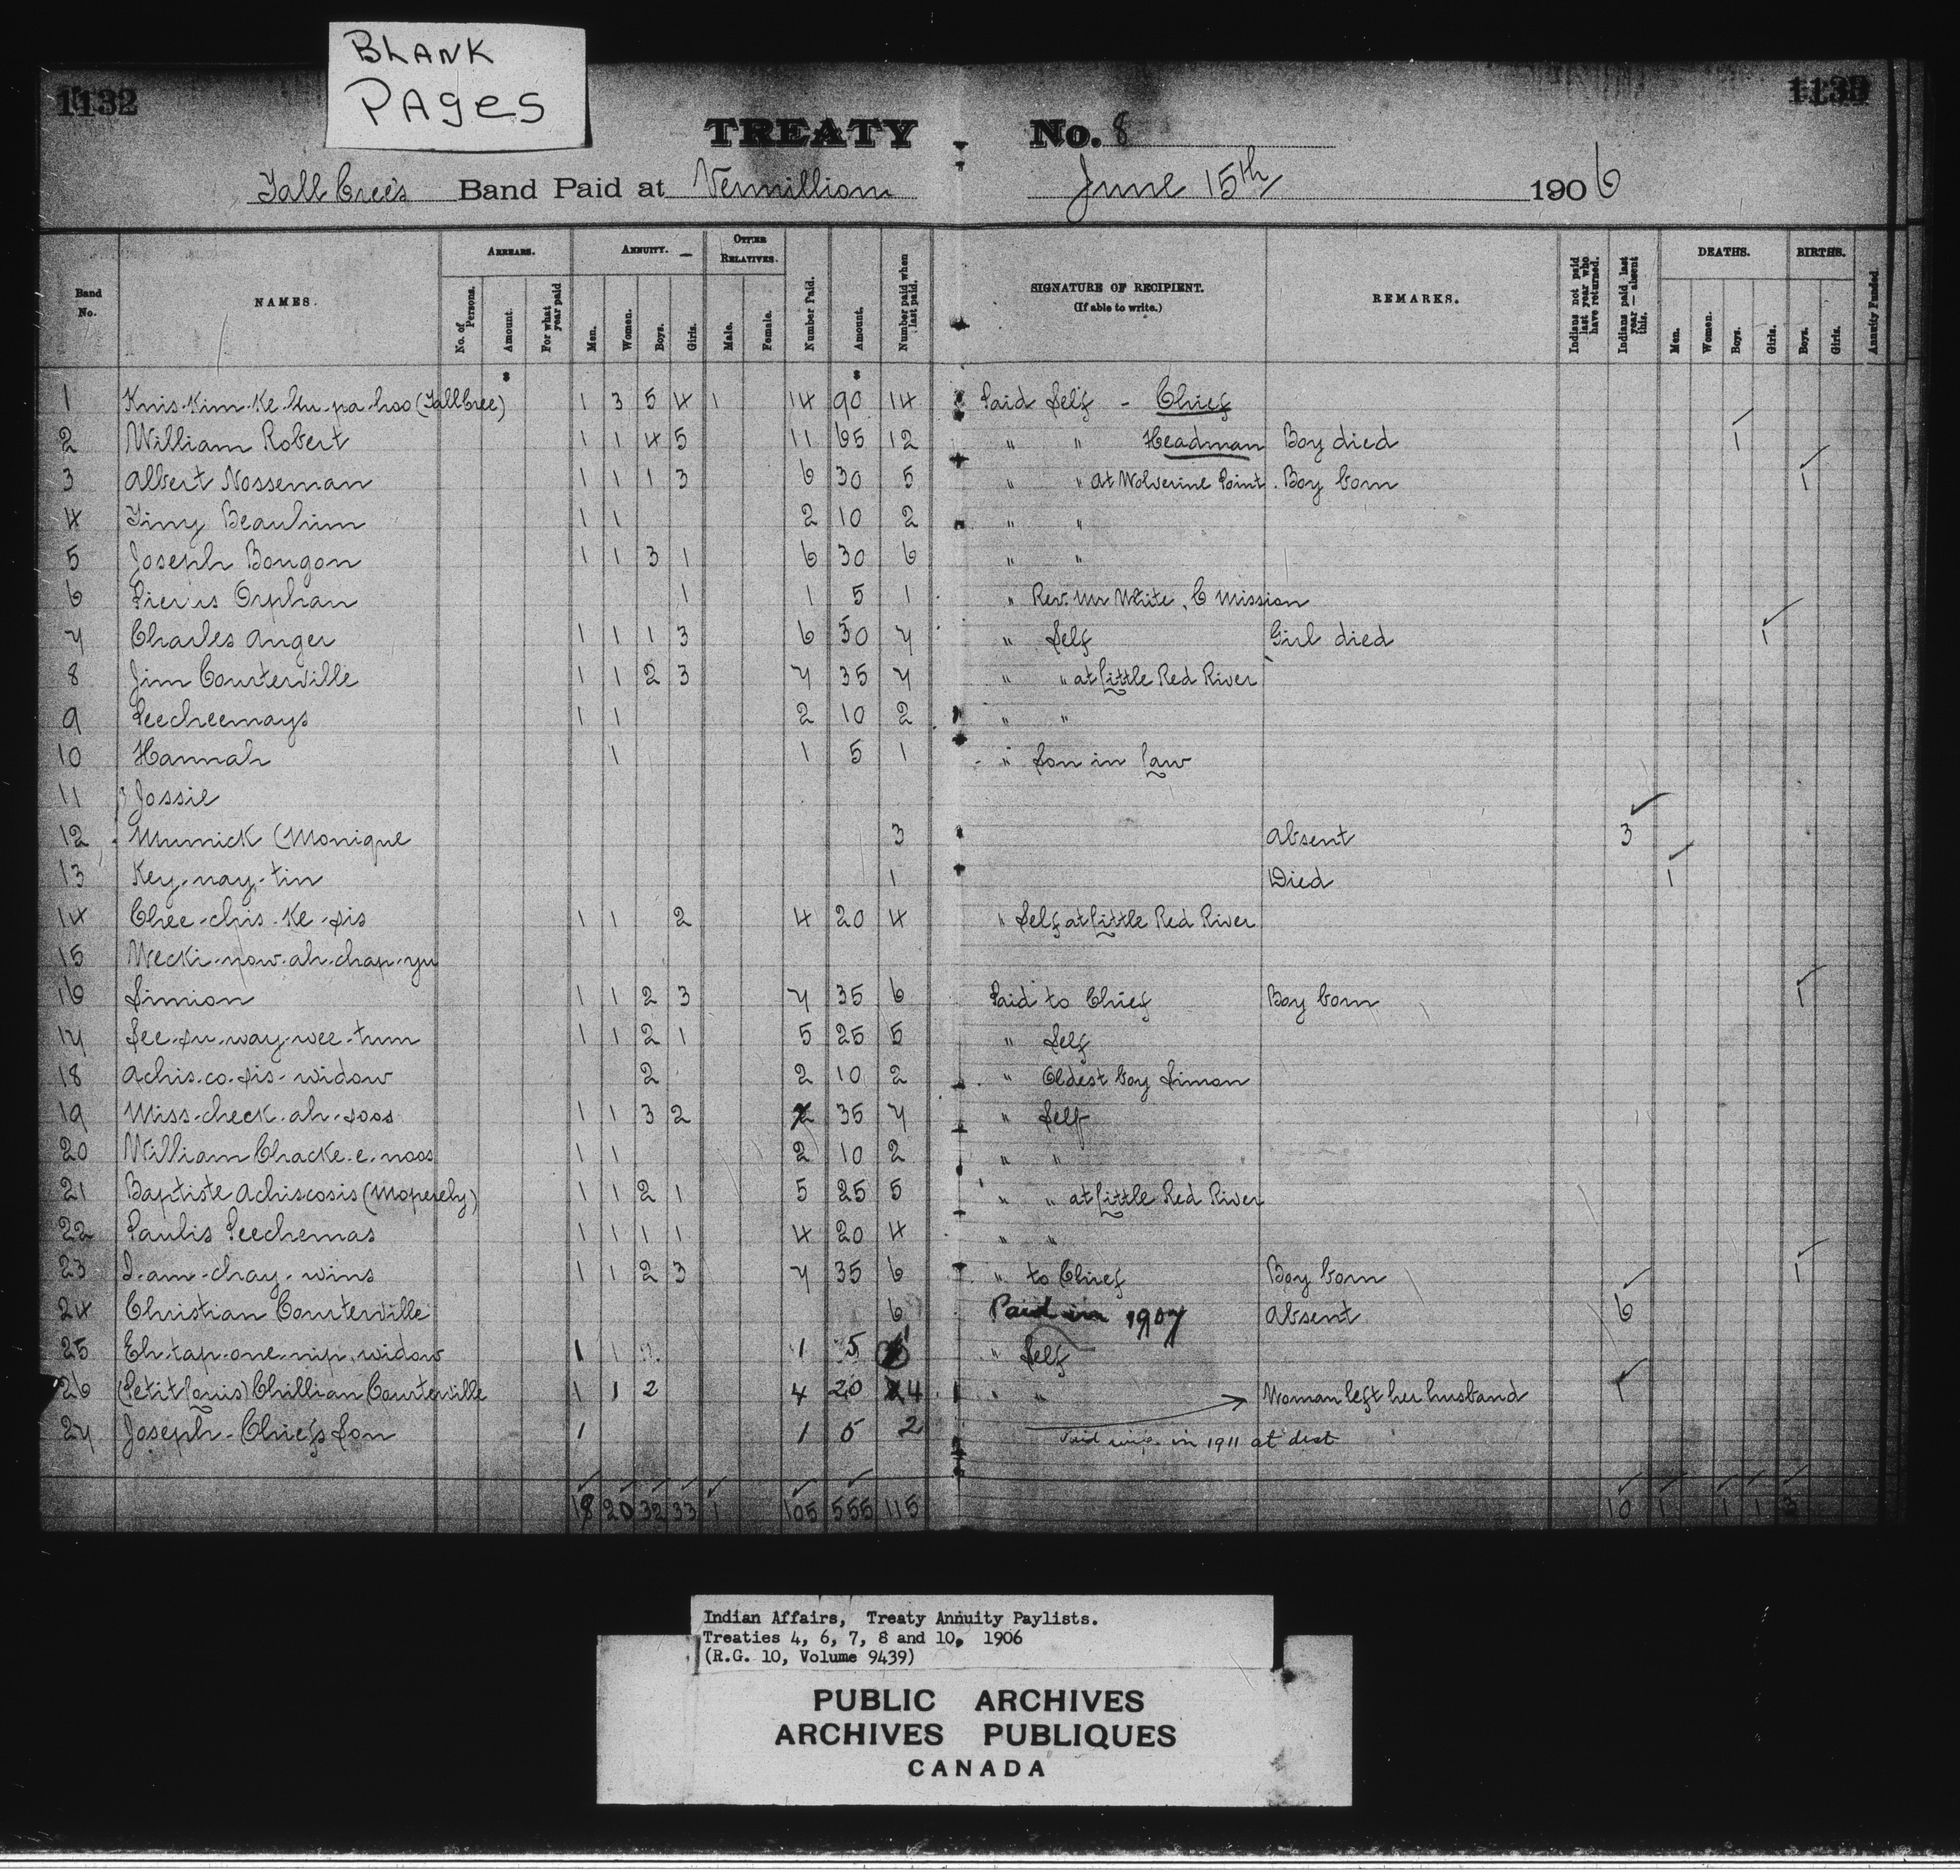 BLANK
PAGES
1132
TREATY No. 8
Tall Cree's Band Paid at Vermillion June 15th 1906
Band No. NAMES. ARREARS. No. of Persons. Amount. For what year paid ANNUITY. Men. Women. Boys. Girls. OTHER RELATIVES. Male. Female. Number Paid. Amount. Number paid when last paid. SIGNATURE OF RECIPIENT. (If able to write.) REMARKS. Indians not paid last year who have returned. Indians paid last year — absent this. DEATHS. Men. Women. Boys. Girls. BIRTHS. Boys. Girls. Annuity Funded.
$ $
1 (Tall Cree) 1 3 5 4 1 14 90 14 Paid Self - Chief
2 William Robert 1 1 4 5 11 65 12 " " Headman Boy died 1
3 Albert Nosseman 1 1 1 3 6 30 5 " " at Wolverine Point. Boy born 1
4 1 1 2 10 2 " "
5 Joseph Bougon 1 1 3 1 6 30 6 " "
6 Orphan 1 1 5 1 " Rev. Mr White, C Mission
7 Charles Anger 1 1 1 3 6 30 7 " Self Girl died 1
8 Jim Courterville 1 1 2 3 7 35 7 " " at Little Red River
9 Peecheemays 1 1 2 10 2 " "
10 Hannah 1 1 5 1 " Son in Law
11 Jossie
12 Munnick (Monique 3 Absent 3
13 Key-nay-tin 1 Died 1
14 Chee-chis-ke-sis 1 1 2 4 20 4 " Self at Little Red River
15 Wecki-now-ah-chap-yu
16 Simion 1 1 2 3 7 35 6 Paid to Chief Boy born 1
17 See-su-way-wee-tum 1 1 2 1 5 25 5 " Self
18 Achis-co-sis-widow 2 2 10 2 " Oldest boy Simon
19 Miss-check-ah-soos 1 1 3 2 35 7 " Self
20 William Chacke-e-noos 1 1 2 10 2 " "
21 Baptiste Achiscosis 1 1 2 1 5 25 5 " " at Little Red River
22 Paulis Peechemas 1 1 1 1 4 20 4 " "
23 1 1 2 3 7 35 6 " to Chief Boy born 1
24 Christian Courterville 6 Paid in 1907 Absent 6
25 Eh-tap-one-nip, widow 1 1 5 " Self
26 (Petit Louis) Chillian Courterville 1 1 2 4 20 4 " " Woman left her husband 1
27 Joseph-Chiefs Son 1 1 5 2 in 1911 at dist
18 20 32 33 1 105 555 115 10 1 1 1 3
Indian Affairs, Treaty Annuity Paylists.
Treaties 4, 6, 7, 8 and 10, 1906
(R.G. 10, Volume 9439)
PUBLIC ARCHIVES
ARCHIVES PUBLIQUES
CANADA